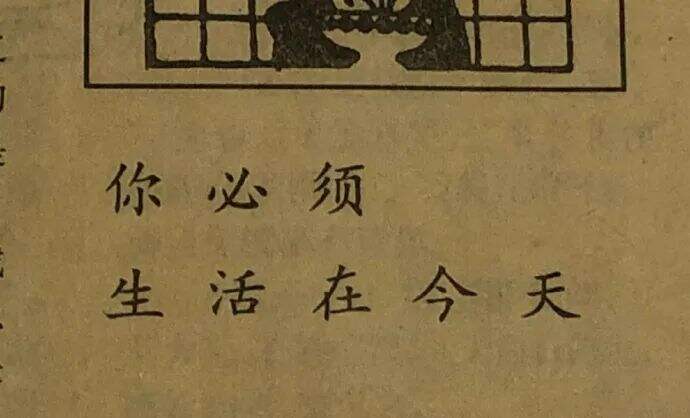 你必须
生活在今天